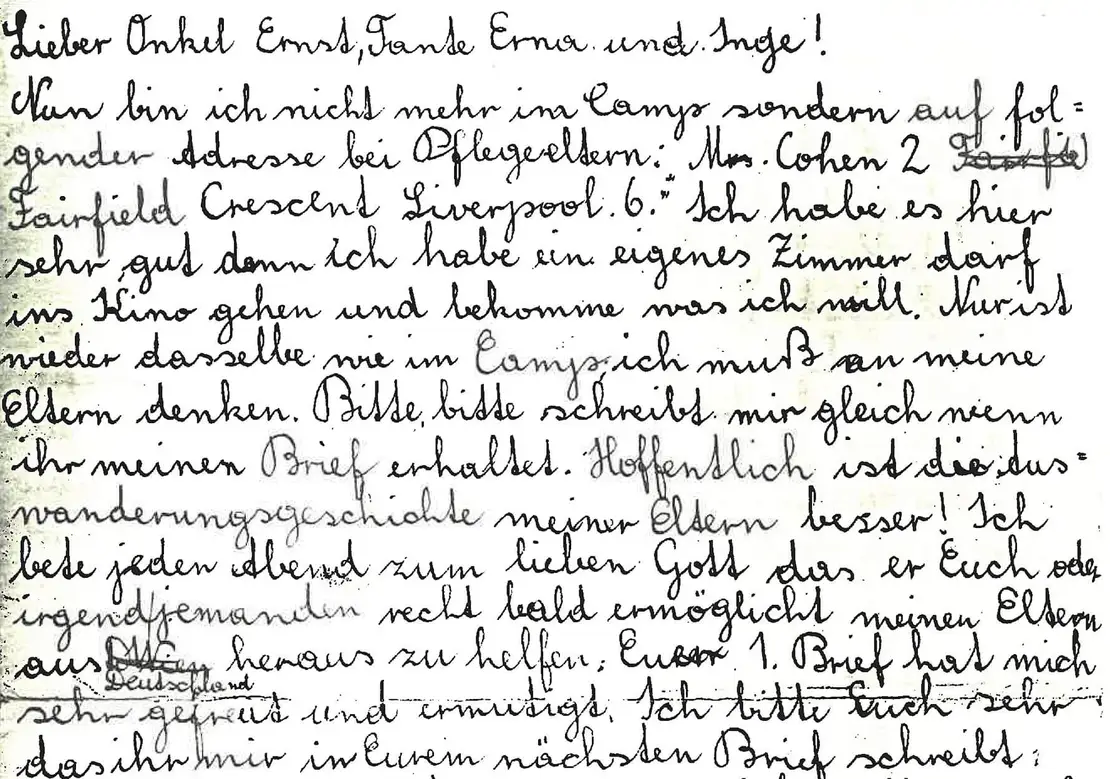 Lieber Onkel Ernst, Tante Erna und Inge!
Nun bin ich nicht mehr im Camp sondern auf fol=
gender Adresse bei Pflegeeltern: Mrs. Cohen 2 Fairfie
Fairfield Crescent Liverpool. 6." Ich habe es hier
sehr gut denn ich habe ein eigenes Zimmer darf
ins Kino gehen und bekomme was ich will. Nur ist
wieder dasselbe wie im Camp, ich muß an meine
Eltern denken. Bitte, bitte schreibt mir gleich wenn
ihr meinen Brief erhaltet. Hoffentlich ist die Aus=
wanderungsgeschichte meiner Eltern besser! Ich
bete jeden Abend zum lieben Gott das er Euch oder
irgend/jemanden recht bald ermöglicht meinen Eltern
aus Deutschland heraus zu helfen. Euer 1. Brief hat mich
sehr gefreut und ermutigt. Ich bitte Euch sehr
das ihr mir in Eurem nächsten Brief schreibt: